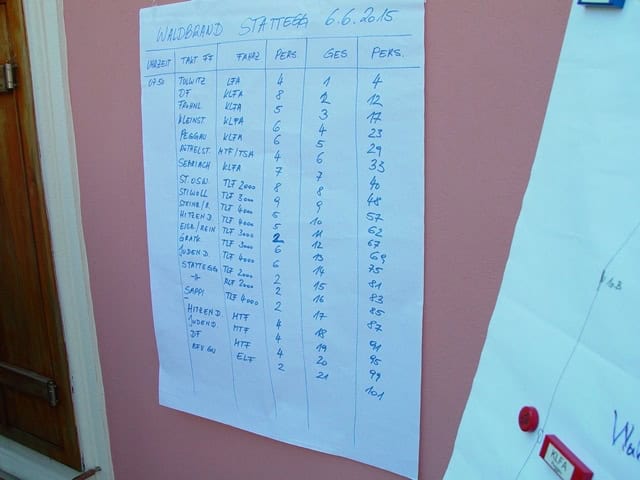 WALDBRAND STATTEGG 6.6.2015
UHRZEIT TAKT FF FAHRZ PERS. GES. PERS.
07:50 TULWITZ LFA 4 1 4
DF KLFA 8 2 12
FROHNL KLFA 5 3 17
KLEINST KLFA 6 4 23
PEGGAU KLFA 6 5 29
MTF/TSA 4 6 33
SEMRIACH KLFA 7 7 40
ST.OSW. TLF 2000 8 8 48
STIWOLL TLF 3000 9 9 57
STEINB/R. TLF 4000 5 10 62
HITZEND. TLF 4000 5 11 67
EISB/REIN TLF 3000 2 12 69
GRATK. TLF 3000 6 13 75
JUDEND. TLF 4000 6 14 81
STATTEGG TLF 2000 2 15 83
-"- RLF 2000 2 16 85
SAPPI TLF 4000 2 17 87
HITZEND. MTF 4 18 91
JUDEND. MTF 4 19 95
DF MTF 4 20 99
BFV GU ELF 2 21 101
KLFA